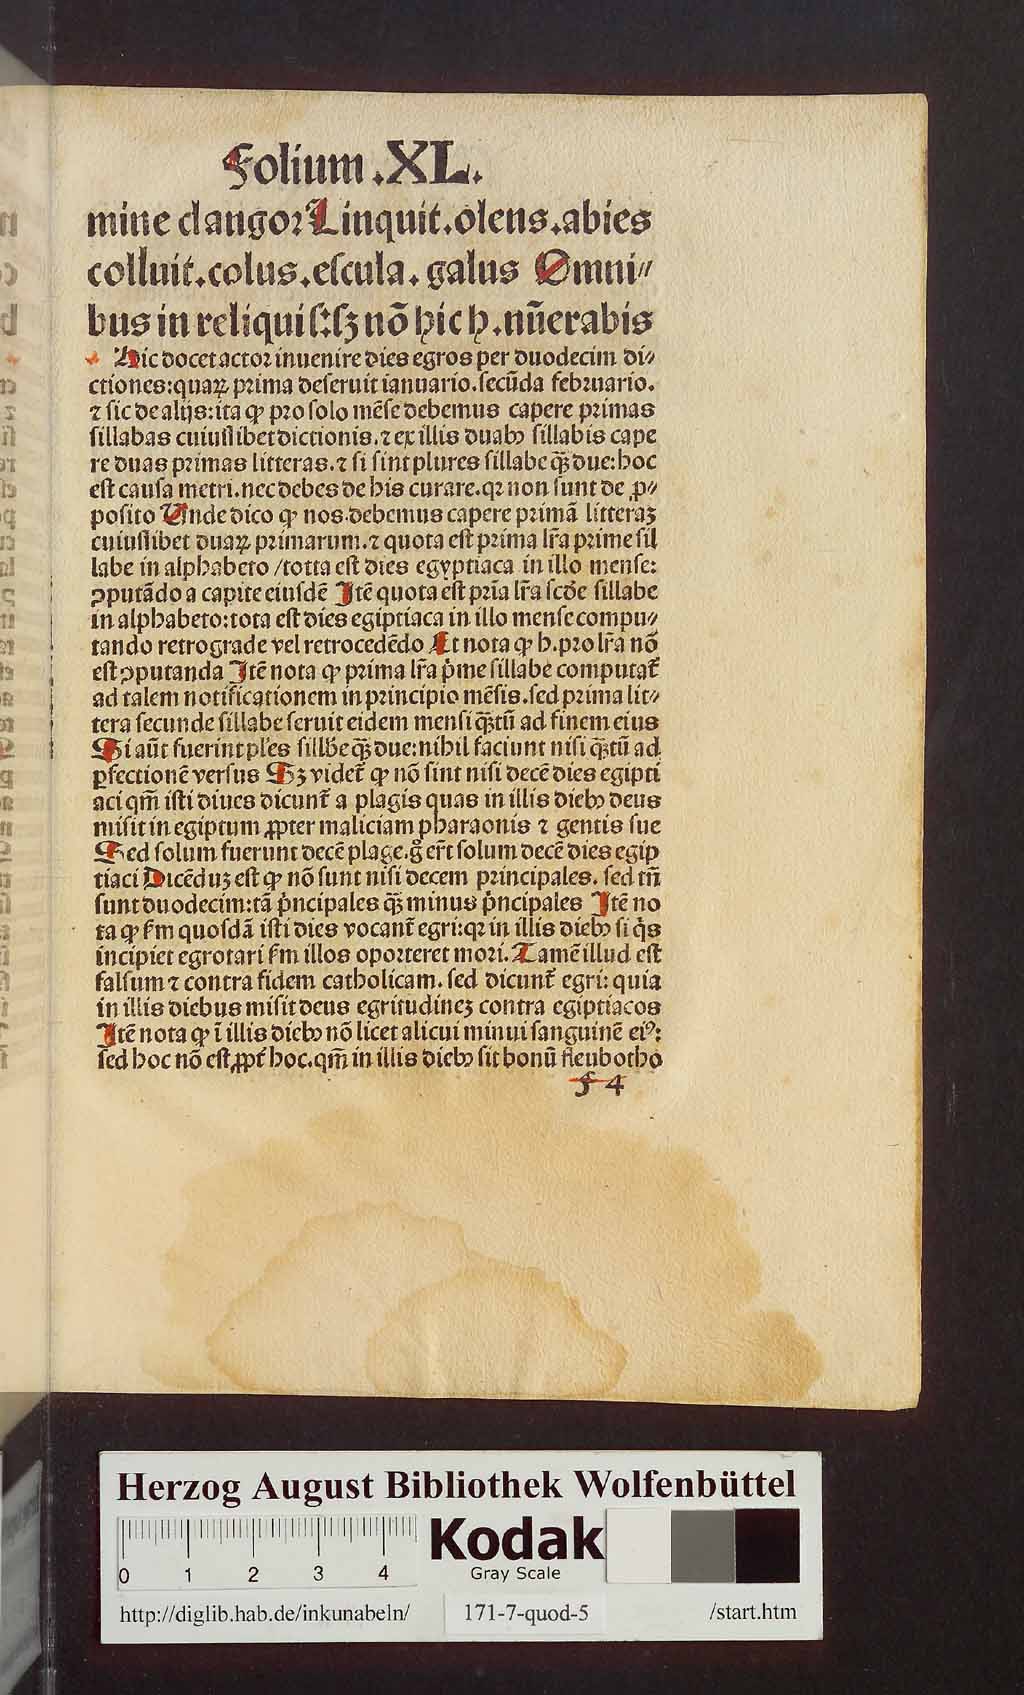 Folium .XL.
mine clangor Linquit.olens.abies
colluit.colus.escula. galus Omni⸗
bus in reliquis:sꝫ nō hic h.nūerabis
Hic docet actor inuenire dies egros per duodecim di⸗
ctiones:quaꝝ prima deseruit ianuario.secūda februario.
⁊ sic de alijs:ita ꝙ pro solo mēse debemus capere primas
sillabas cuiuslibet dictionis.⁊ ex illis duabꝰ sillabis cape
re duas primas litteras.⁊ si sint plures sillabe q̄ꝫ due:hoc
est causa metri.nec debes de his curare.qꝛ non sunt de ꝓ⸗
posito Unde dico ꝙ nos.debemus capere primā litteraꝫ
cuiuslibet duaꝝ primarum.⁊ quota est prima lr̄a prime sil
labe in alphabeto /totta est dies egyptiaca in illo mense:
ꝯputādo a capite eiusdē Itē quota est pri̅a lr̄a scd̄e sillabe
in alphabeto:tota est dies egiptiaca in illo mense compu⸗
tando retrograde vel retrocedēdo Et nota ꝙ h.pro lr̄a nō
est ꝯputanda Itē nota ꝙ prima lr̄a p̄me sillabe computat᷑
ad talem notificationem in principio mēsis.sed prima lit⸗
tera secunde sillabe seruit eidem mensi q̄ꝫtū ad finem eius
Si aūt fuerint pl̄es sillb̄e q̄ꝫ due:nihil faciunt nisi q̄ꝫtū ad
ꝑfectionē versus Sꝫ videt᷑ ꝙ nō sint nisi decē dies egipti
aci qm̄ isti diues dicunt᷑ a plagis quas in illis diebꝰ deus
misit in egiptum ꝓpter maliciam pharaonis ⁊ gentis sue
Sed solum fuerunt decē plage.g̊ er̄t solum decē dies egip
tiaci Dicēduꝫ est ꝙ nō sunt nisi decem principales. sed tn̄
sunt duodecim:tā p̄ncipales q̄ꝫ minus p̄ncipales Itē no
ta ꝙ ẜm quosdā isti dies vocant᷑ egri:qꝛ in illis diebꝰ si q̊s
incipiet egrotari ẜm illos oporteret mori.Tamē illud est
falsum ⁊ contra fidem catholicam. sed dicunt᷑ egri: quia
in illis diebus misit deus egritudineꝫ contra egiptiacos
Itē nota ꝙ ī illis diebꝰ nō licet alicui minui sanguinē eiꝰ:
sed hoc nō est ꝓpt᷑ hoc.qm̄ in illis diebꝰ sit bonū fleubotho
f 4
Herzog August Bibliothek Wolfenbüttel
0 1 2 3 4
Kodak
Gray Scale
http://diglib.hab.de/inkunabeln/ 171-7-quod-5 /start.htm